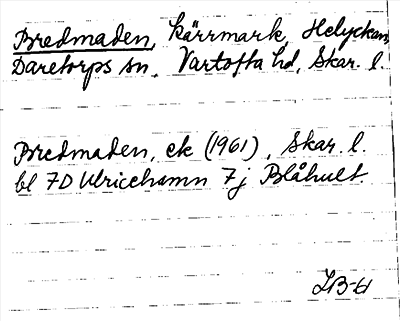 Bredmaden, kärrmark, Helyckan,
Daretorps sn, Vartofta hd, Skar. l.
Bredmaden, ek (1961), Skar. l.
bl 7D Ulricehamn 7j Blåhult.